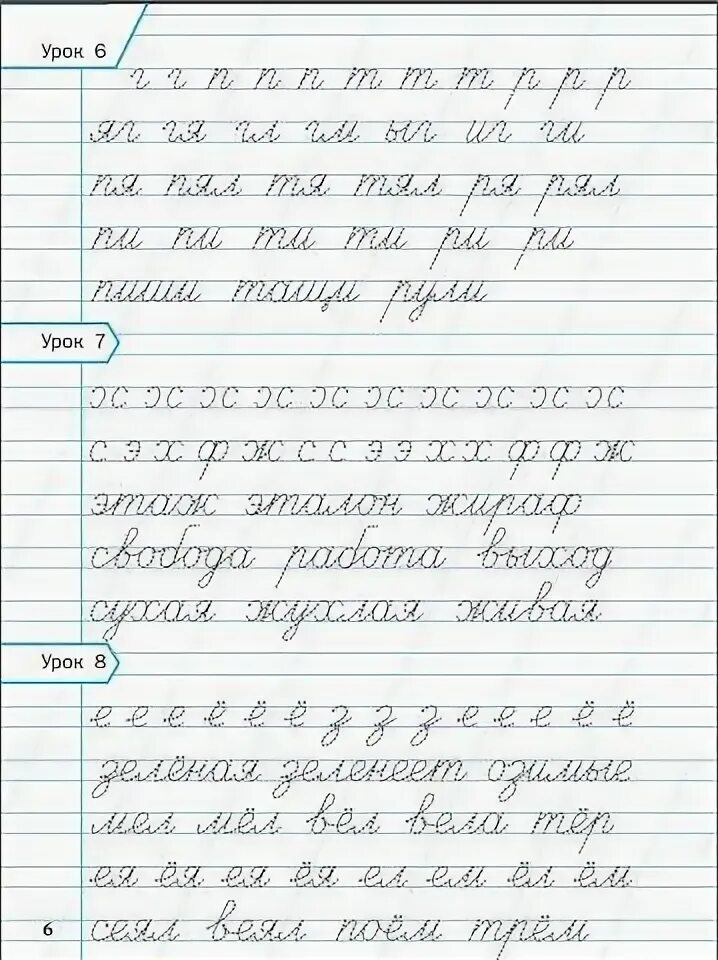 Урок 6
г г п п п т т т р р р
яг гя гл гм ыг иг ги
пя пял тя тял ря рял
пи пи ти ти ри ри
пиши тащи рули
Урок 7
ɔ с ɔ с ɔ с ɔ с ɔ с ɔ с ɔ с ɔ с ɔ с ɔ с
с э х ф ж с с э э х х ф ф ж
этаж эталон жираф
свобода работа выход
сухая жухлая живая
Урок 8
е е е ё ё ё з з з е е е ё ё
зелёная зеленеет озимые
мел мёл вёл вела тёр
ея ёя ея ёя ел ем ёл ём
сеял веял поём трём
6